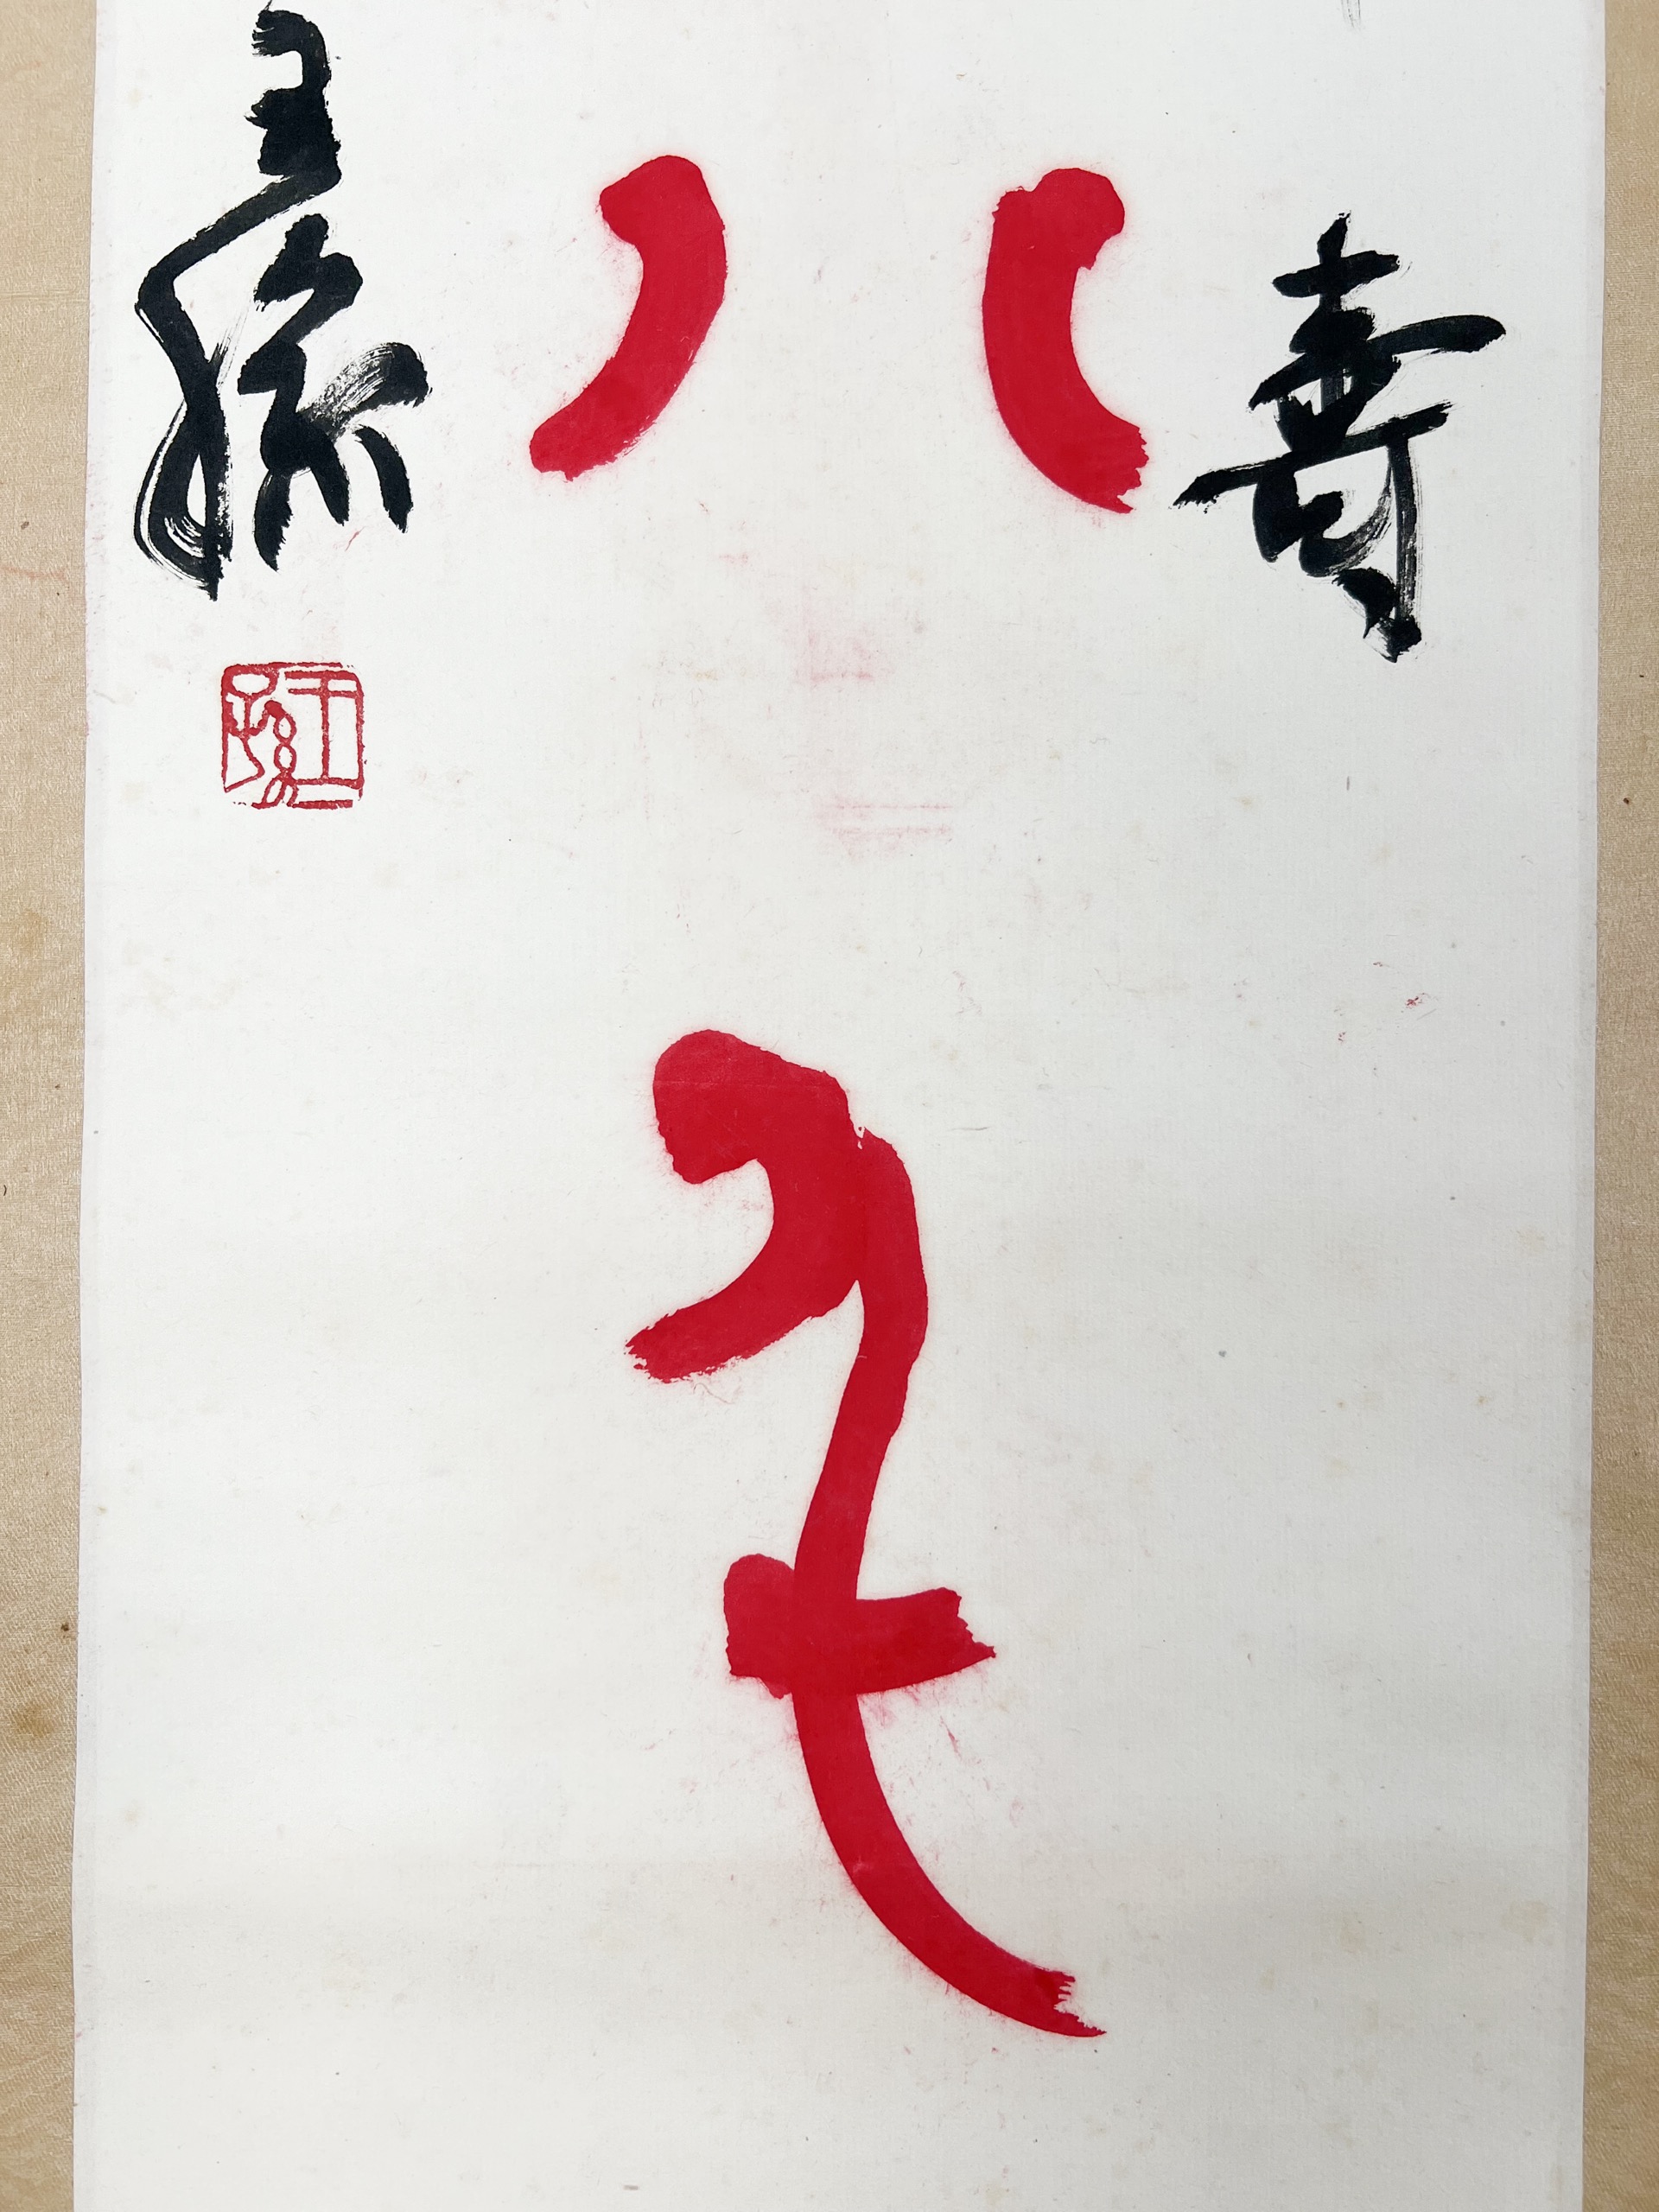 壽
八千
王孫
王孫